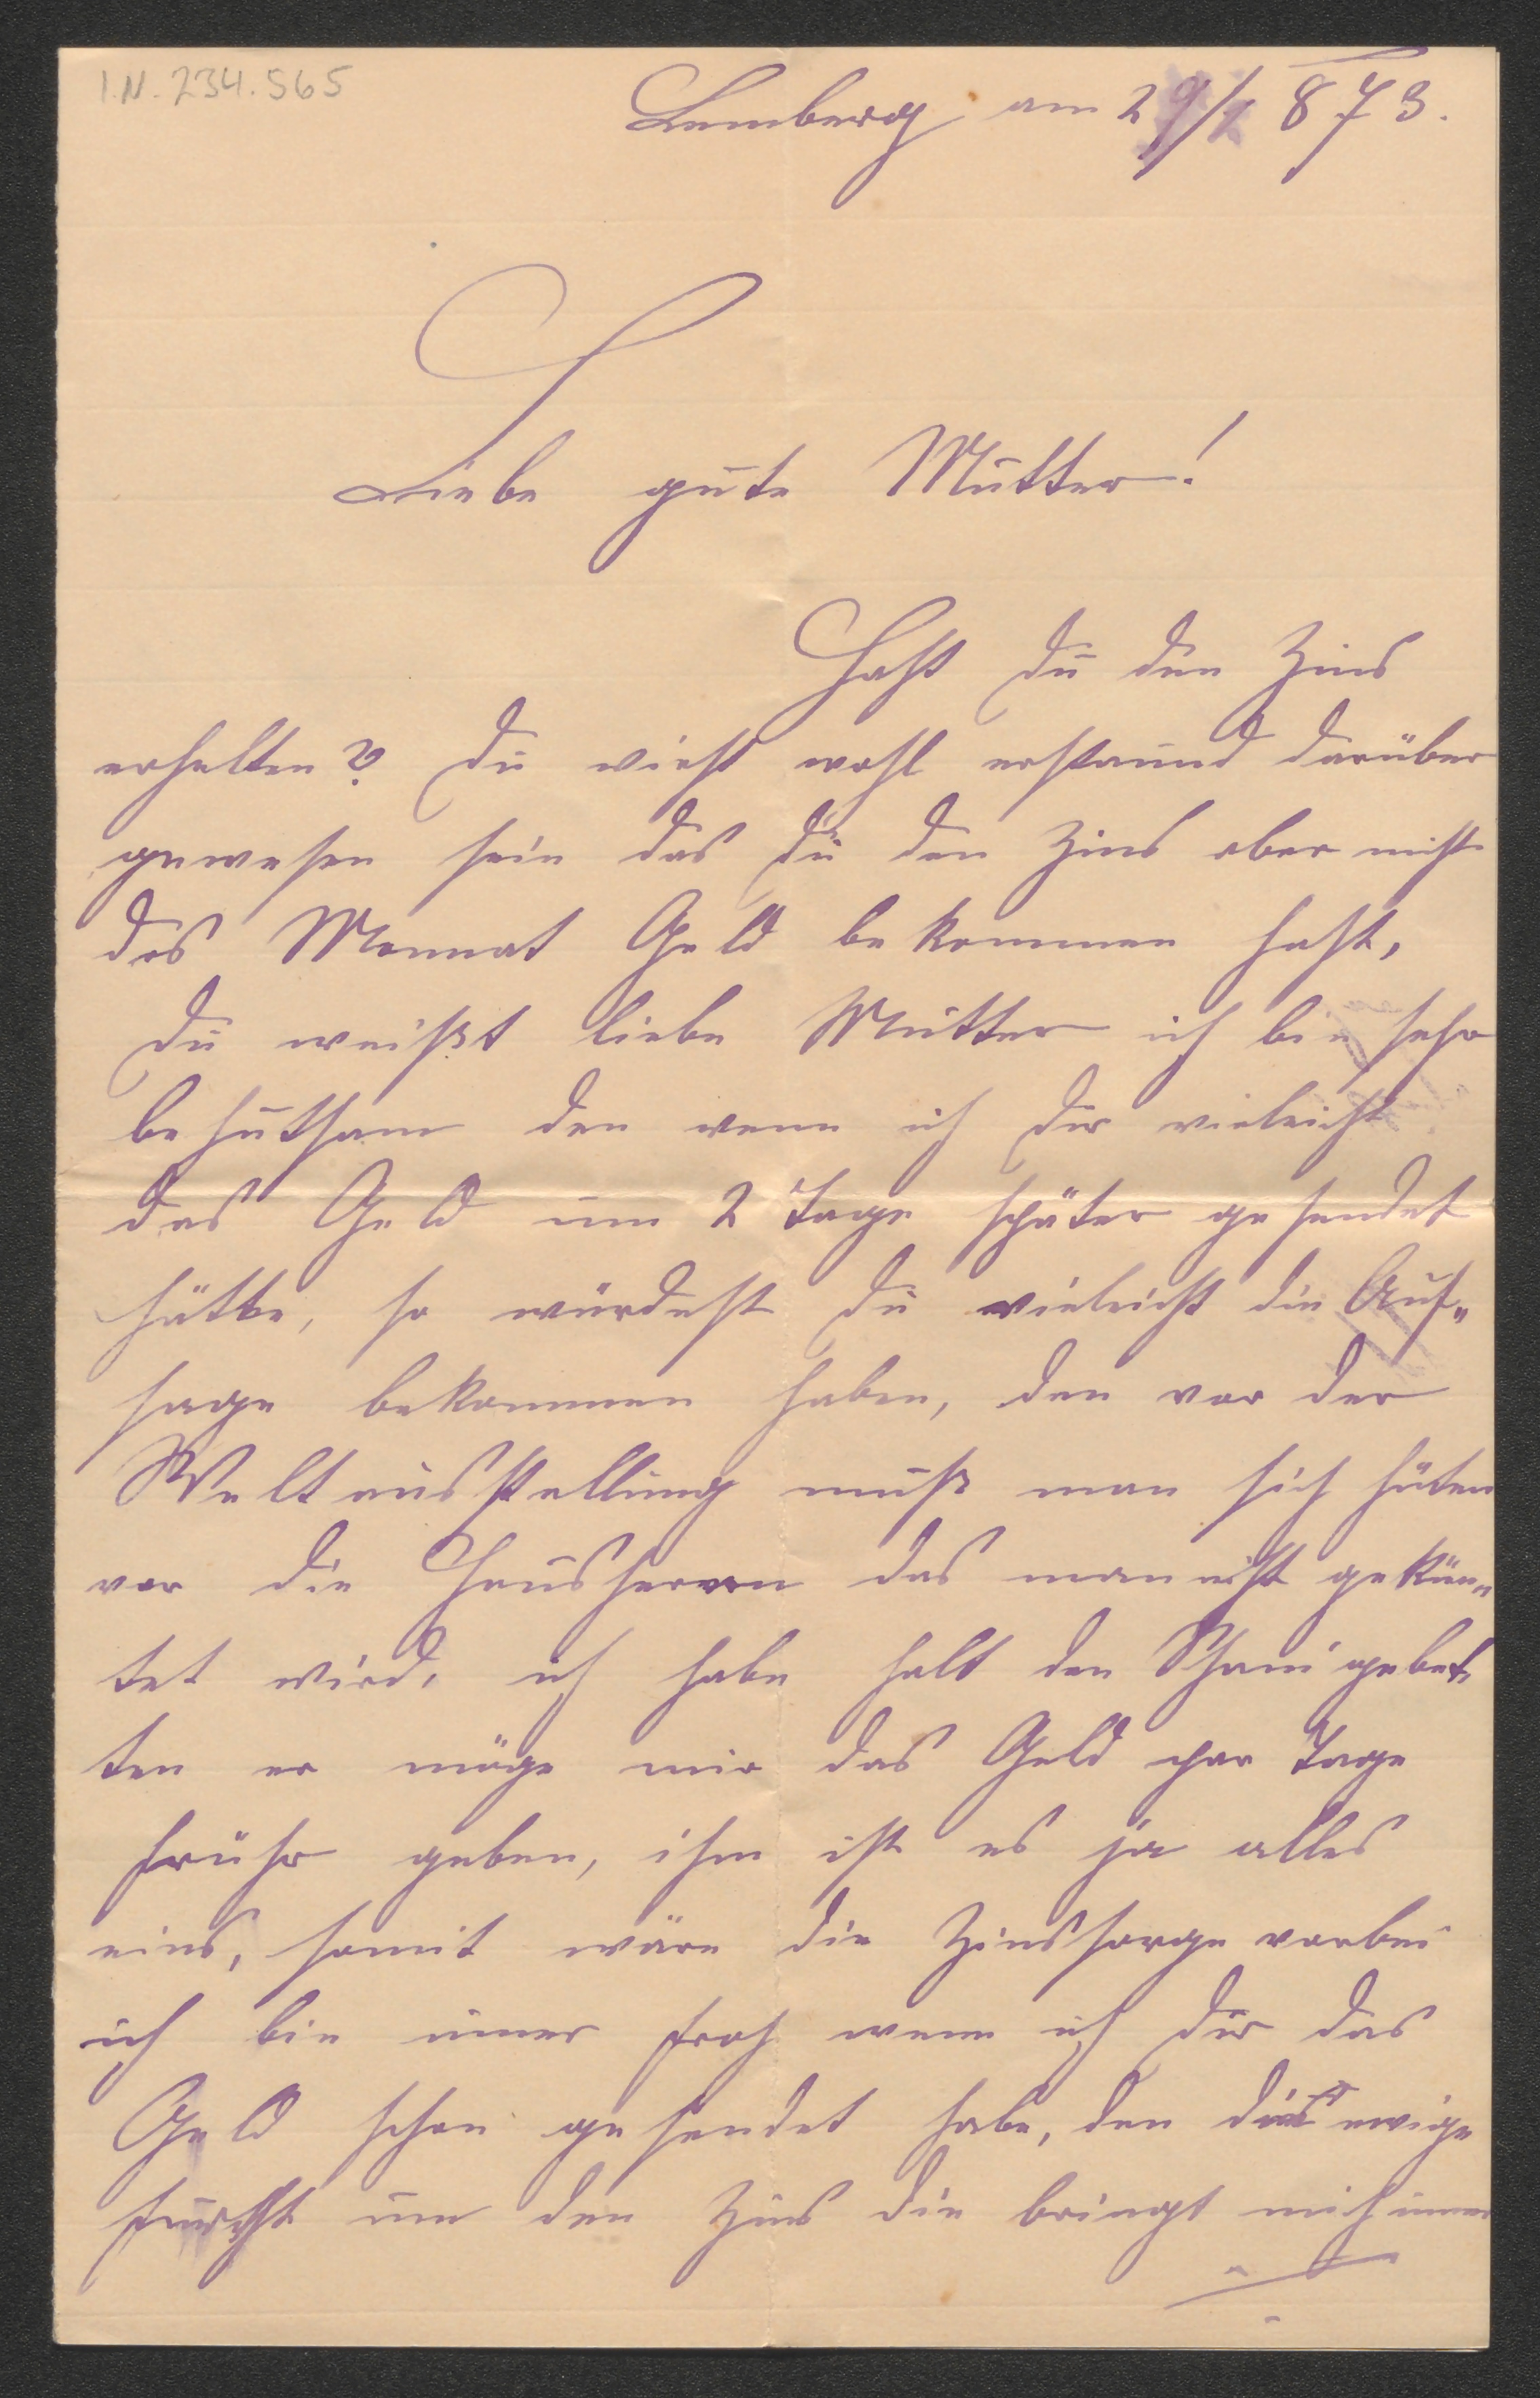 I.N. 234.565
Lemberg am 29/1 873.
Liebe gute Mutter!
Hast du den Zins
erhalten? du wirst wohl erstaund darüber
gewesen sein das du den Zins aber nicht
das Monnat Geld bekommen hast,
du weißt liebe Mutter ich bin sehr
behutsam den wenn ich dir vieleicht
das Geld um 2 Tage später gesendet
hätte, so würdest du vieleicht die Auf„
sage bekommen haben, den vor der
Weltausstellung muß man sich hüten
vor die Hausherrn das man nicht gekün„
tet wird, ich habe halt den Schani gebet
ten er möge mir das Geld par Tage
frühr geben, ihm ist es ja alles
eins, somit wäre die Zinssorge vorbei
ich bin imer froh wenn ich dir das
Geld schon gesendet habe, den die ewige
furcht um den Zins die bringt mich imer